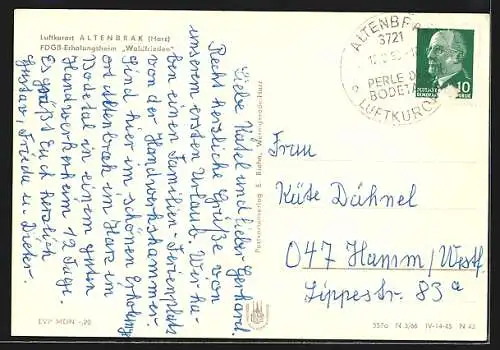 Luftkurort ALTENBRAK (Harz)
FDGB-Erholungsheim "Waldfrieden"
Liebe Kätel und lieber Gerhard.
Recht herzliche Grüße von
unserem ersten Urlaub. Wir ha-
ben einen Familien-Ferienplatz
von der Handwerkskammer.
Sind hier im schönen Erholungs
ort Altenbrak im Harz im
Bodetal in einem guten
Handwerkerheim 12 Tage.
Es grüßt Euch herzlich
Gustav, Frieda u. Dieter.
EVP MDN -,20
Postkartenverlag E. Riehn, Wernigerode/Harz
ALTENBRAK
3721
PERLE D
BODETAL
LUFTKURORT
DEUTSCHE
10
Frau
Käte Dähnel
047 Hamm/Westf.
Lippestr. 83a
357c N 3/66 IV-14-45 N 43